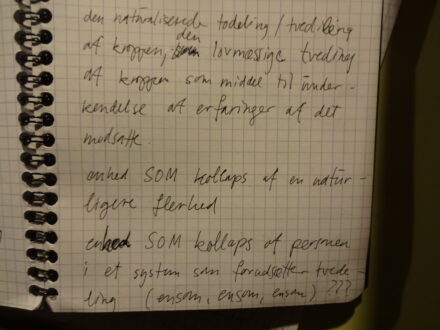 den naturaliserede todeling / tvedeling
af kroppen, den lovmæssige tvedeling
af kroppen som middel til under-
kendelse af erfaringer af det
modsatte.
enhed SOM kollaps af en natur-
ligere flerhed
enhed SOM kollaps af personen
i et system som forudsætter tvede-
ling (ensom, ensom, ensom) ???